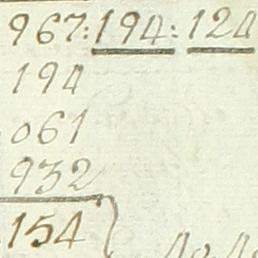 967:194:124
194
061
932
154